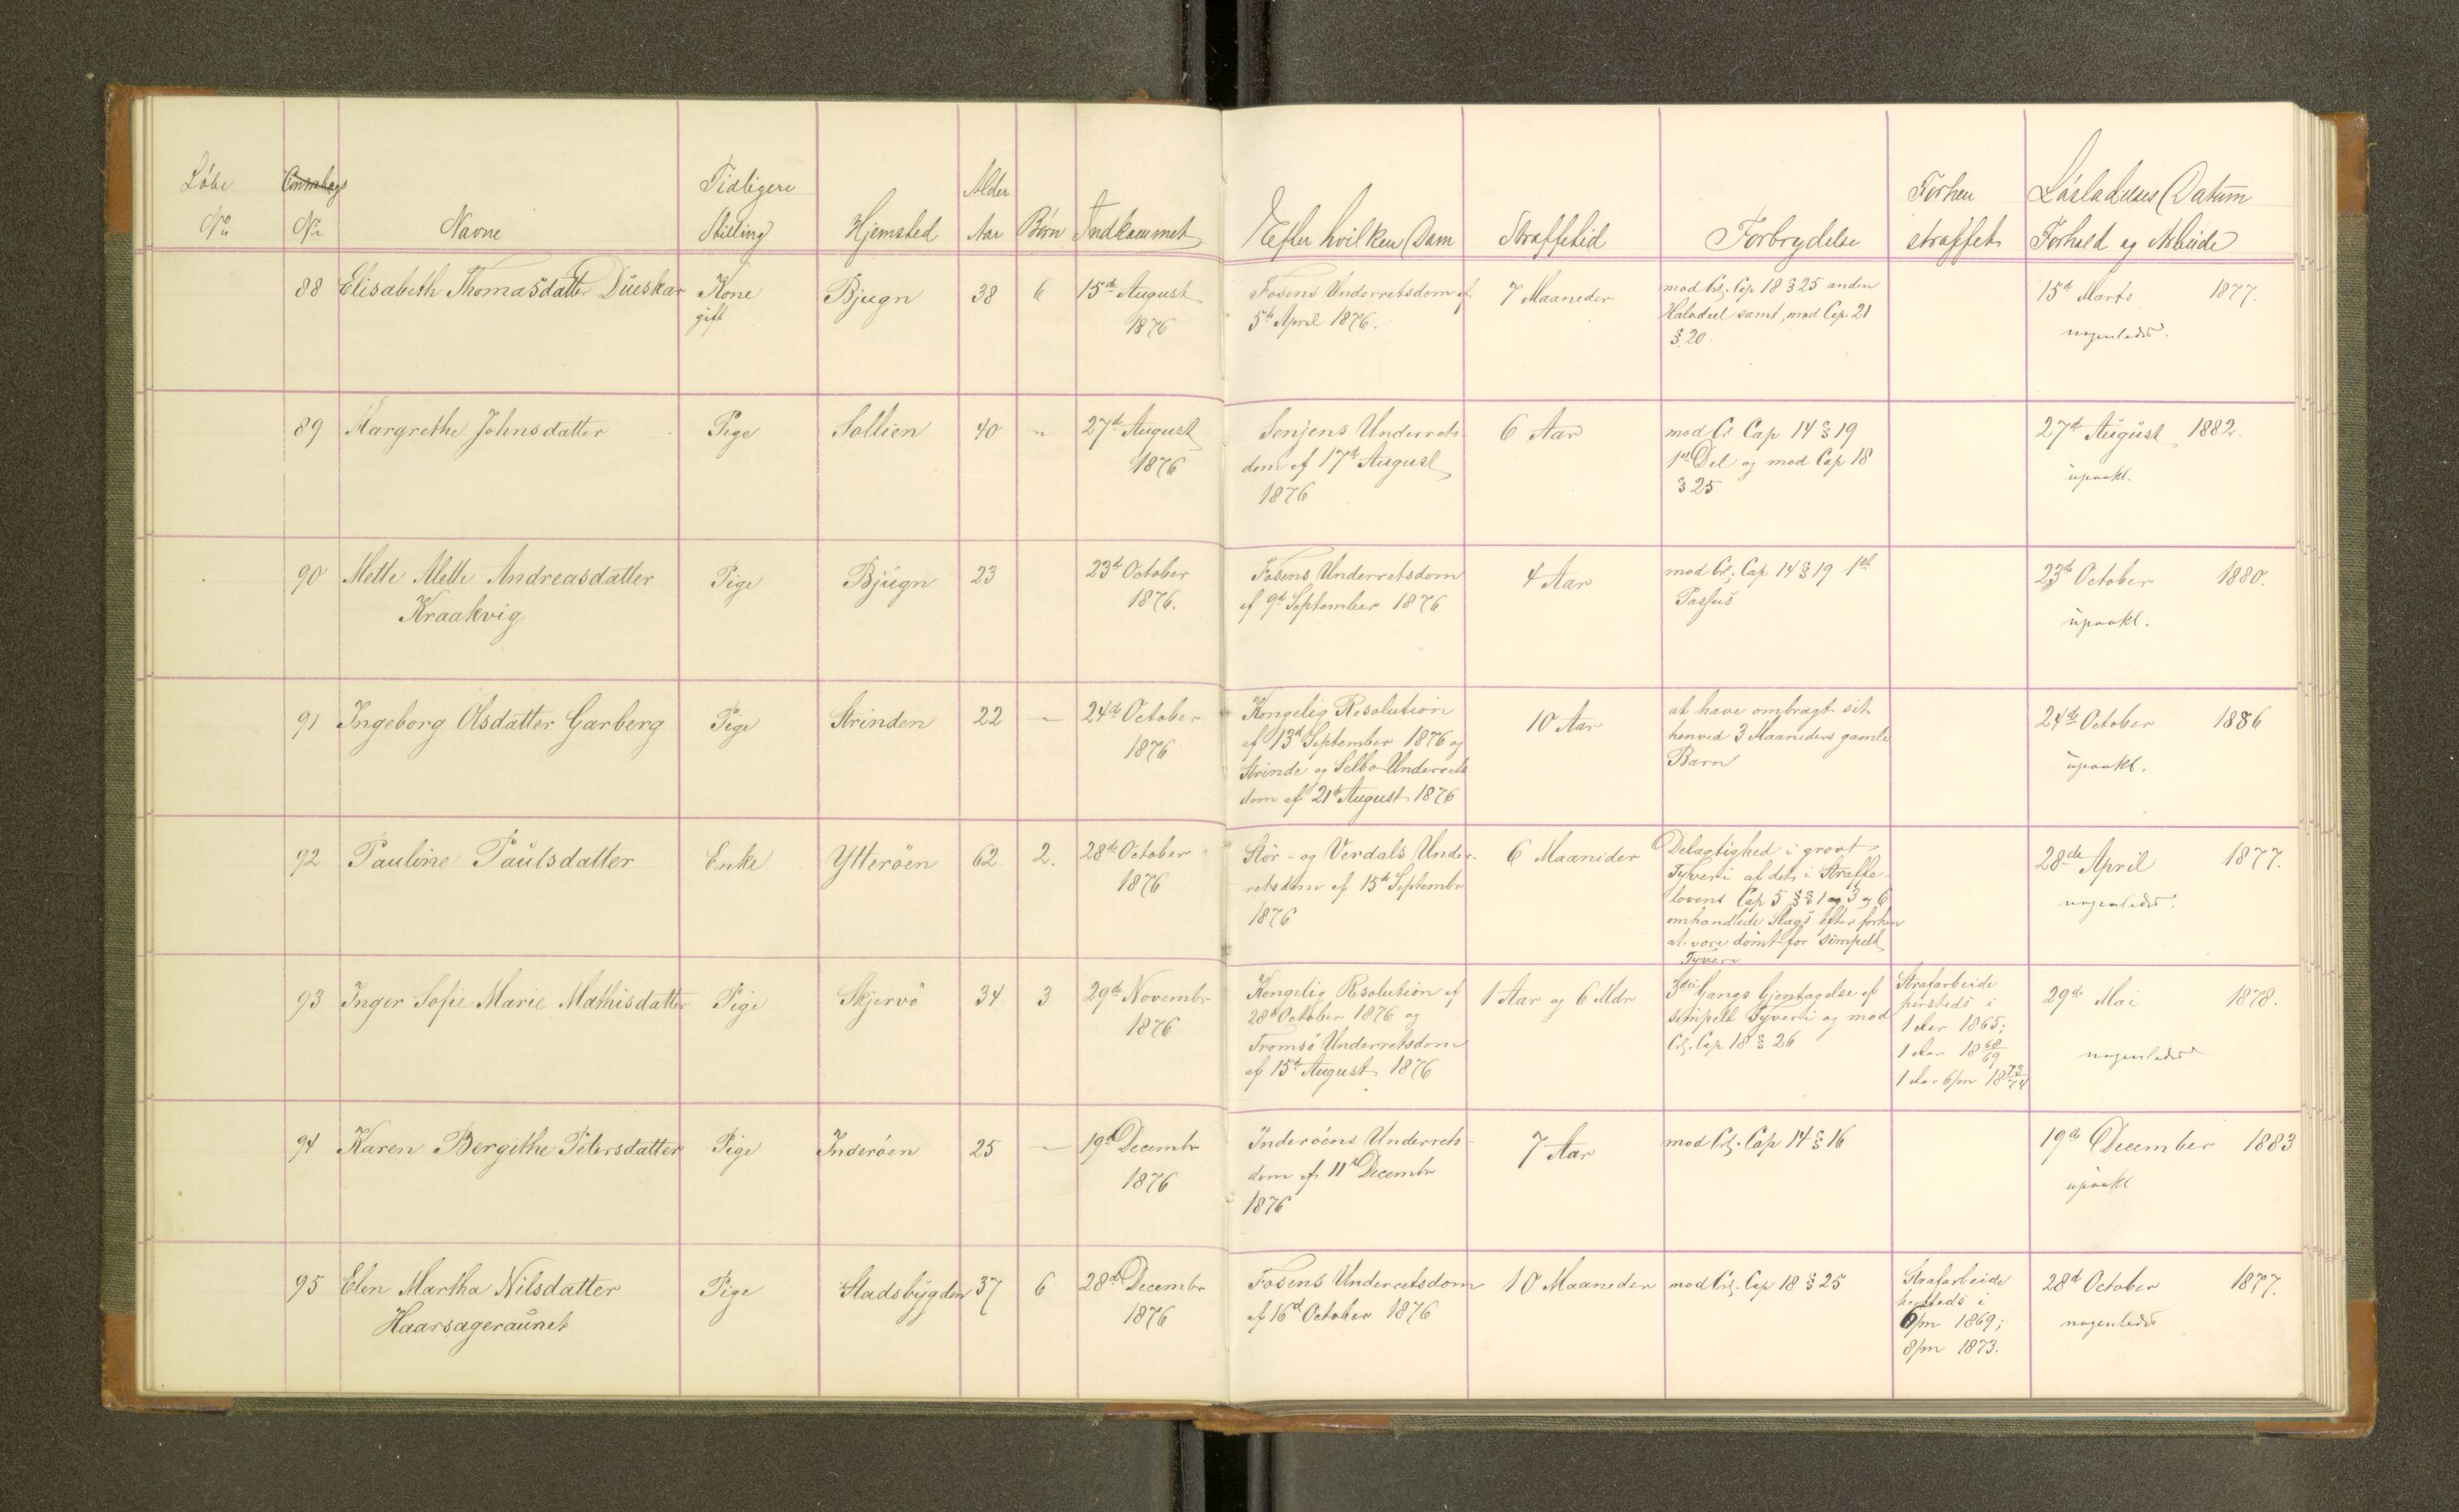 Løbe
No
Nr
Navne
Tidligere
Stilling
Hjemsted
Alder
Aar
Børn
Indkommet
Efter hvilken Dom
Straffetid
Forbrydelse
Forhen
straffet
Løsladelses Datum
Forhold og Arbeide
88 Elisabeth Thomasdatter Dueskar
Kone
gift
Bjugn
38
6
15de August
1876
Fosens Underretsdom af
5te April 1876.
7 Maaneder
mod Crl. Cap 18 § 25 anden
samt mod Cap 21
§ 20.
15de Marts 1877.
nogenledes.
89 Margrethe Johnsdatter
Pige
Sollien
40
"
27de August
1876
Senjens Underrets-
dom af 17de August
1876
6 Aar
mod Cr. Cap 14 § 19
1ste Del og mod Cap 18
§ 25
27de August 1882.
upaakl.
90 Mette Mette Andreasdatter
Kraakvig
Pige
Bjugn
23
23de October
1876.
Fosens Underretsdom
af 9de September 1876
4 Aar
mod Crl. Cap 14 § 19 1ste
Passus
23de October 1880.
upaakl.
91 Ingeborg Olsdatter Garberg
Pige
Strinden
22
-
24de October
1876
Kongelig Resolution
af 13de September 1876 og
Strinde og Selbo Underrets
dom af 21de August 1876
10 Aar
at have ombragt sit
henved 3 Maaneders gamle
Barn
24de October 1886
upaakl.
92 Pauline Paulsdatter
Enke
Ytterøen
62
2.
28de October
1876
Stør- og Verdals Under-
retsdom af 15de Septembr
1876
6 Maaneder
Delagtighed i grovt
Tyveri af det i Straffe-
lovens Cap 5 §§ 1 og 3 og 6
omhandlede Slags efter forhen
at være dømt for simpelt
Tyveri
28de April 1877.
nogenledes.
93 Inger Sofie Marie Mathisdatter
Pige
Skjervø
34
3
29de Novembr
1876
Kongelig Resolution af
28de October 1876 og
Tromsø Underretsdom
af 15de August 1876
1 Aar og 6 Mdr
3die Gangs Gjentagelse af
simpelt Tyveri og mod
Crl. Cap 18 § 26
Strafarbeide
hersteds i
1 Aar 1865;
1 Aar 1868/69
1 Aar 6/m 1873/74
29de Mai 1878.
nogenledes
94 Karen Bergithe Petersdatter
Pige
Inderøen
25
-
19de Decembr
1876
Inderøens Underrets-
dom af 11te Decembr
1876
7 Aar
mod Crl. Cap 14 § 16
19de December 1883
upaakl
95 Elen Martha Nilsdatter
Haarsageraunet
Pige
Stadsbygden
37
6
28de Decembr
1876
Fosens Underretsdom
af 16de October 1876
10 Maaneder
mod Crl. Cap 18 § 25
Strafarbeide
hersteds i
6/m 1869;
8/m 1873.
28de October 1877.
nogenledes